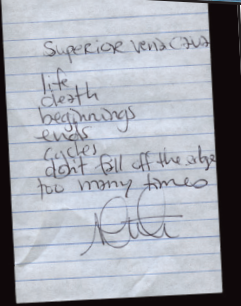 Superior vena cava
life
death
beginnings
ends
cycles
dont fall off the edge
too many times